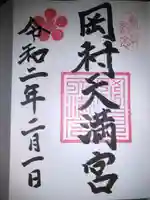 岡村天満宮
令和二年二月一日